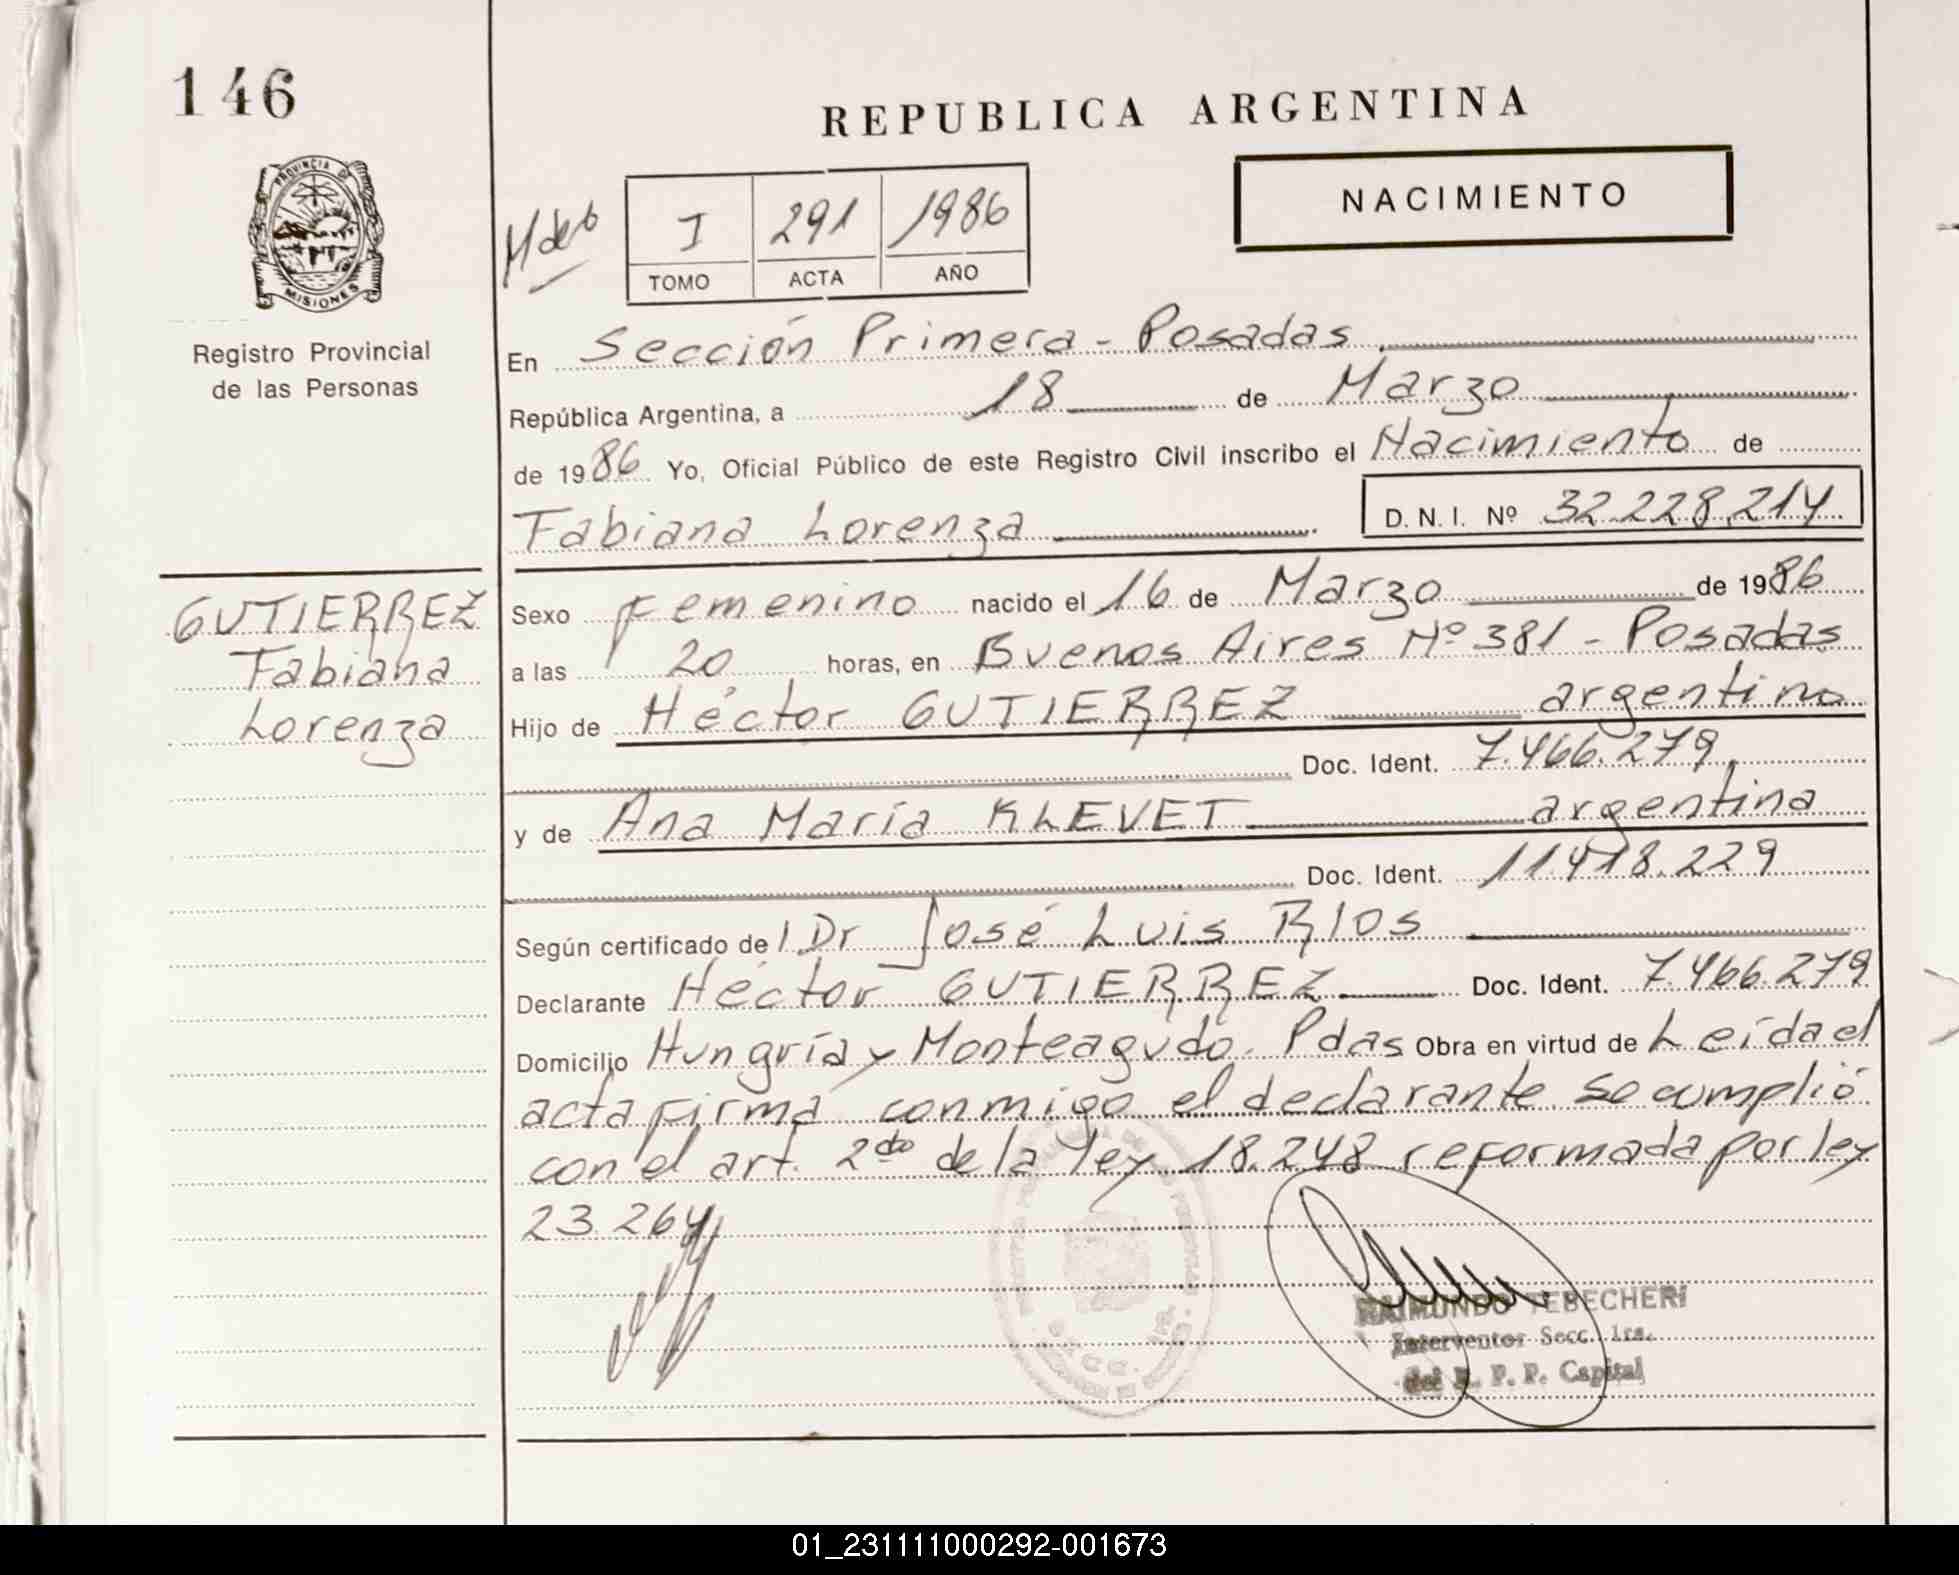 146
REPUBLICA ARGENTINA
PROVINCIA DE
MISIONES
Registro Provincial
de las Personas
I 291 1986
TOMO ACTA AÑO
NACIMIENTO
En Sección Primera - Posadas
República Argentina, a 18 de Marzo
de 1986 Yo, Oficial Público de este Registro Civil inscribo el Nacimiento de
Fabiana Lorenza D. N. I. Nº 32.228.214
GUTIERREZ
Fabiana
Lorenza
Sexo Femenino nacido el 16 de Marzo de 1986
a las 20 horas, en Buenos Aires Nº 381 - Posadas
Hijo de Héctor GUTIERREZ argentino
Doc. Ident. 7.466.279
y de Ana María KLEVET argentina
Doc. Ident. 11.418.229
Según certificado de l Dr José Luis RIOS
Declarante Héctor GUTIERREZ Doc. Ident. 7.466.279
Domicilio Hungría y Monteagudo. Pdas Obra en virtud de Leída el
acta firma conmigo el declarante se cumplió
con el art. 2do de la ley 18.248 reformada por ley
23.264
RAIMUNDO TEBECHERI
Interventor Secc. 1ra.
del R. P. P. Capital
01_231111000292-001673